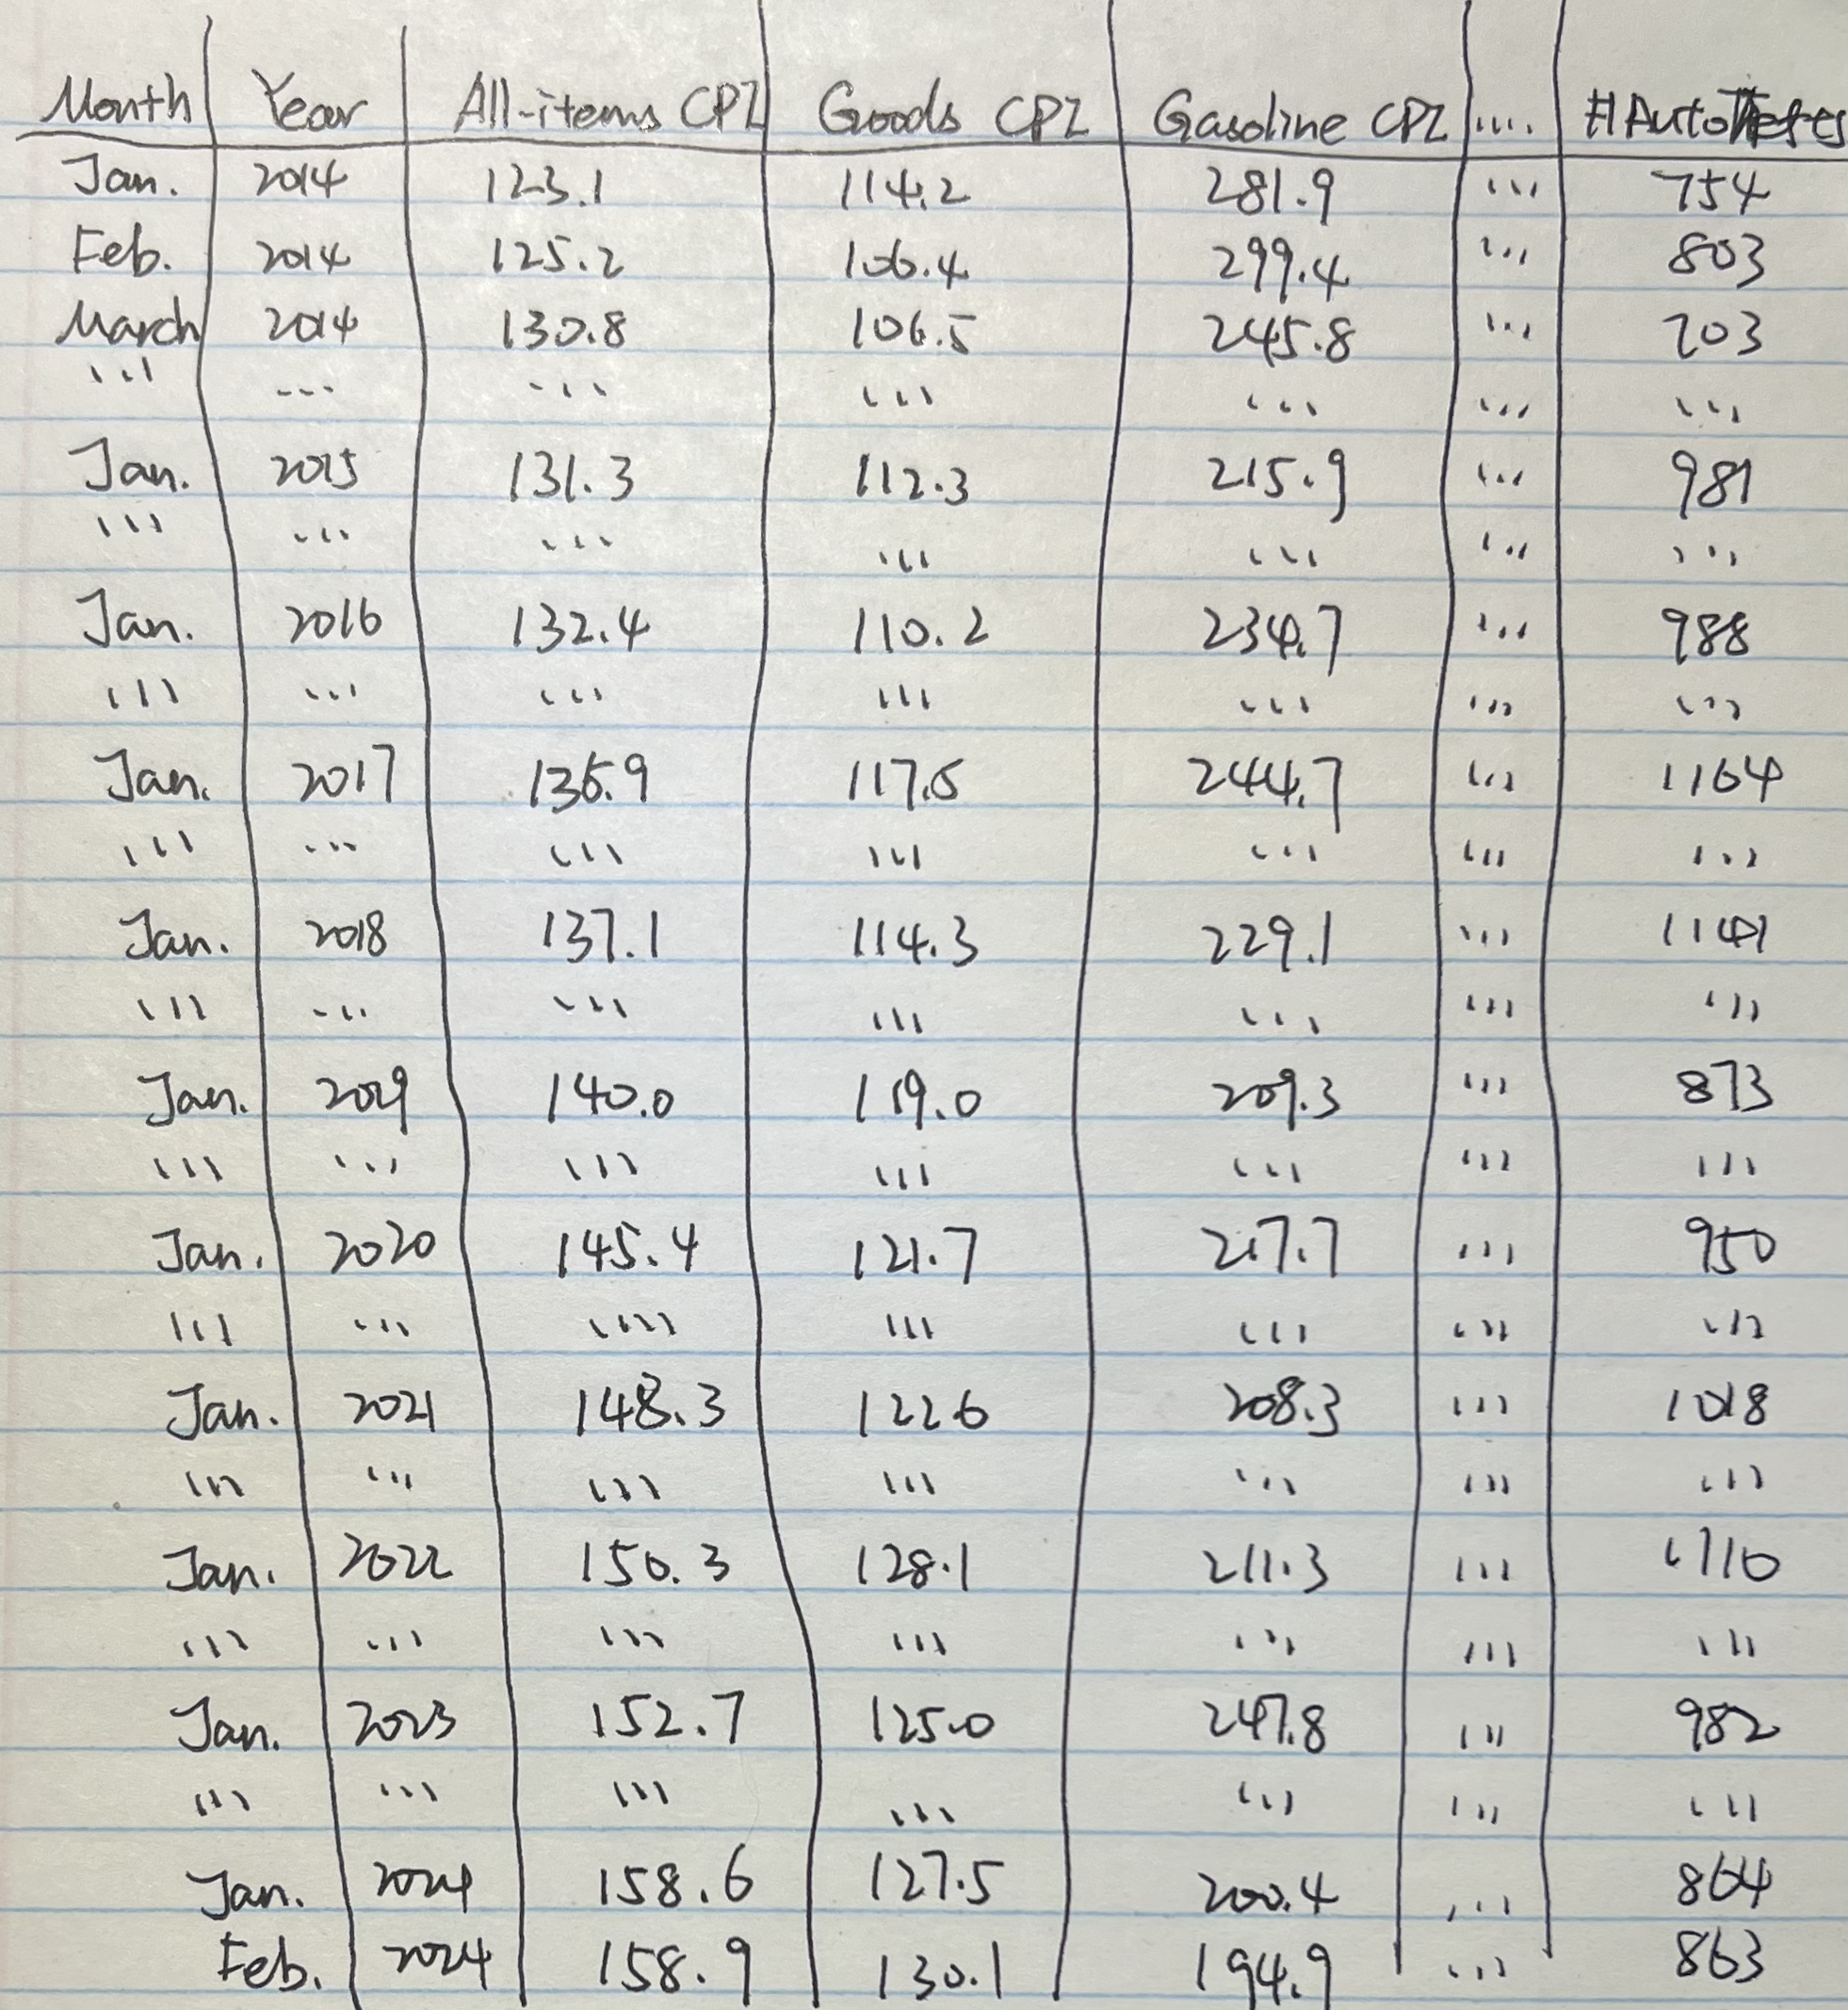 Month Year All-items CPI Goods CPI Gasoline CPI .... #AutoThefts
Jan. 2014 123.1 114.2 281.9 ... 754
Feb. 2014 125.2 106.4 299.4 ... 803
March 2014 130.8 106.5 245.8 ... 703
... ... ... ... ... ... ...
Jan. 2015 131.3 112.3 215.9 ... 981
... ... ... ... ... ... ...
Jan. 2016 132.4 110.2 234.7 ... 988
... ... ... ... ... ... ...
Jan. 2017 136.9 117.5 244.7 ... 1164
... ... ... ... ... ... ...
Jan. 2018 137.1 114.3 229.1 ... 1141
... ... ... ... ... ... ...
Jan. 2019 140.0 119.0 209.3 ... 873
... ... ... ... ... ... ...
Jan. 2020 145.4 121.7 217.7 ... 950
... ... .... ... ... ... ...
Jan. 2021 148.3 122.6 208.3 ... 1018
... ... ... ... ... ... ...
Jan. 2022 150.3 128.1 211.3 ... 1710
... ... ... ... ... ... ...
Jan. 2023 152.7 125.0 247.8 ... 982
... ... ... ... ... ... ...
Jan. 2024 158.6 127.5 200.4 ... 864
Feb. 2024 158.9 130.1 194.9 ... 863